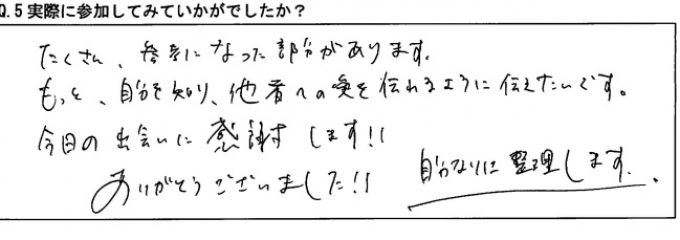 Q.5実際に参加してみていかがでしたか？
たくさん、参考になった部分があります。
もっと、自分を知り、他者への愛を伝れるように伝えたいです。
今日の出会いに感謝します!!
ありがとうございました!!
自分なりに整理します。